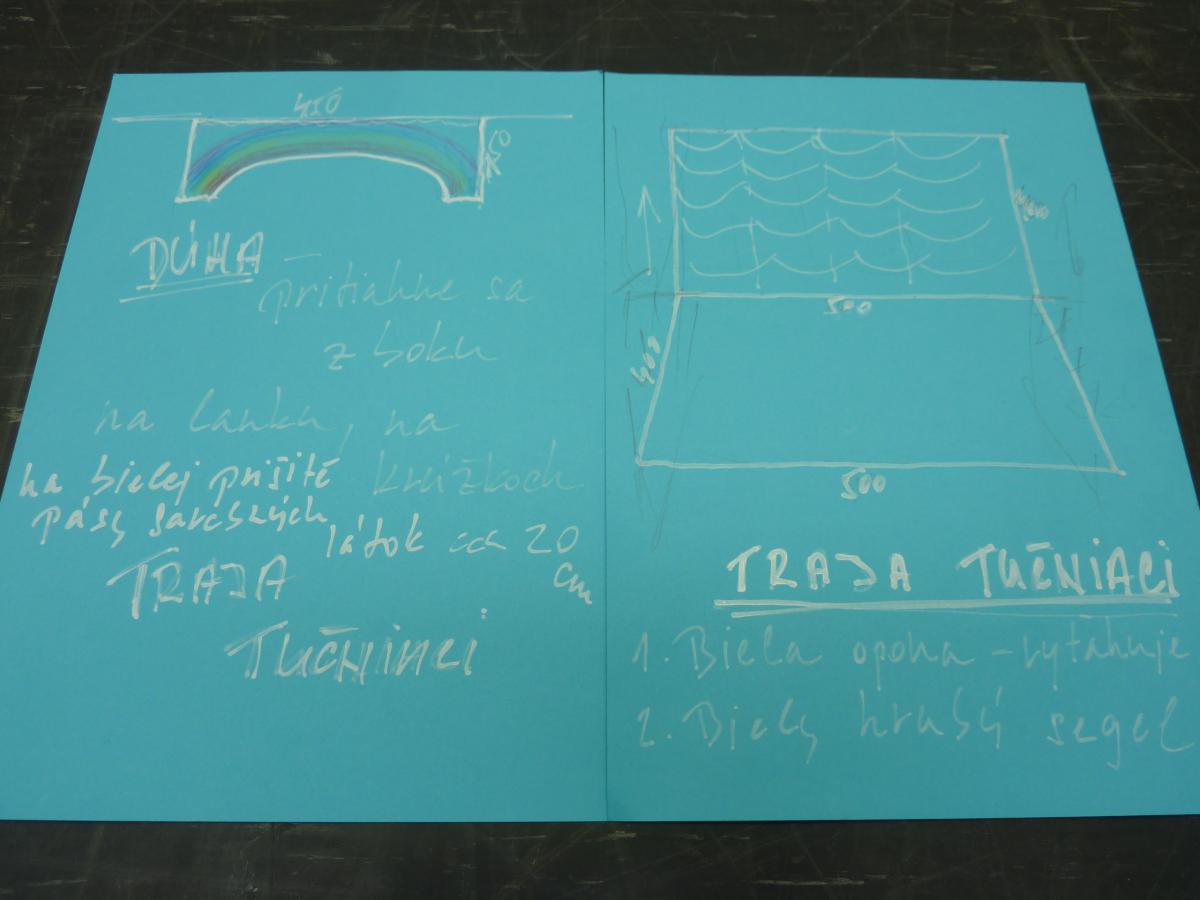 450
DÚHA
pritiahne sa
z boku
na lanku, na
krúžkoch
na bielej prišité
pásy farebných
látok cca 20
cm
TRAJA
TUČNIACI
400
500
400
500
TRAJA TUČNIACI
1. Biela opona - vyťahuje
2. Biely hrubý šegel